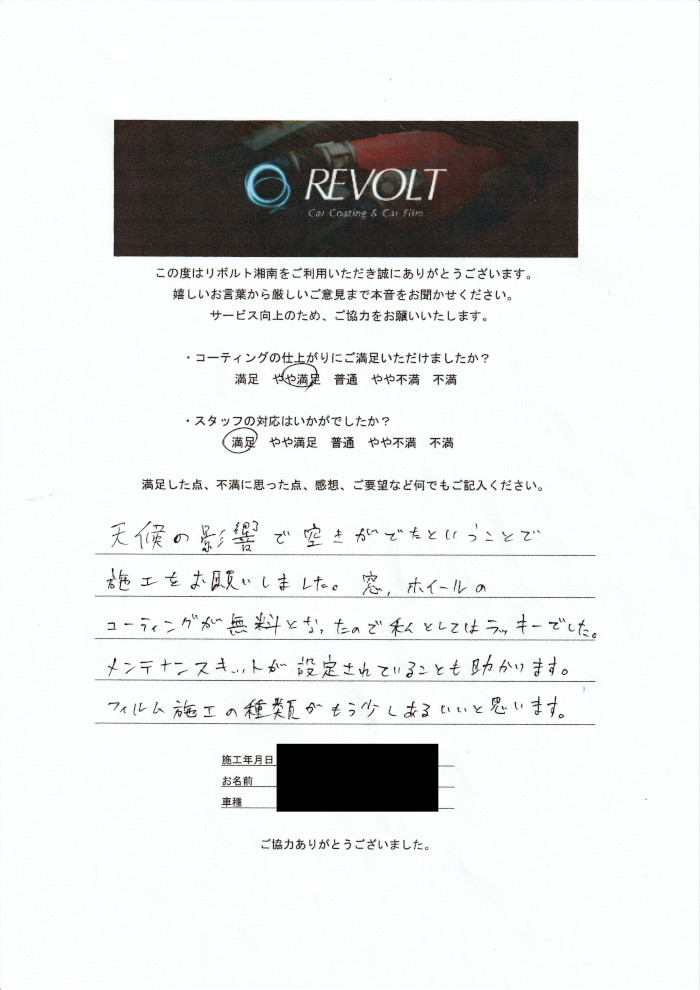 REVOLT
Car Coating & Car Film
この度はリボルト湘南をご利用いただき誠にありがとうございます。
嬉しいお言葉から厳しいご意見まで本音をお聞かせください。
サービス向上のため、ご協力をお願いいたします。
・コーティングの仕上がりにご満足いただけましたか？
満足 やや満足 普通 やや不満 不満
・スタッフの対応はいかがでしたか？
満足 やや満足 普通 やや不満 不満
満足した点、不満に思った点、感想、ご要望など何でもご記入ください。
天候の影響で空きがでたということで
施工をお願いしました。窓、ホイールの
コーティングが無料となったので私としてはラッキーでした。
メンテナンスキットが設定されていることも助かります。
フィルム施工の種類がもう少しあるいいと思います。
施工年月日
お名前
車種
ご協力ありがとうございました。